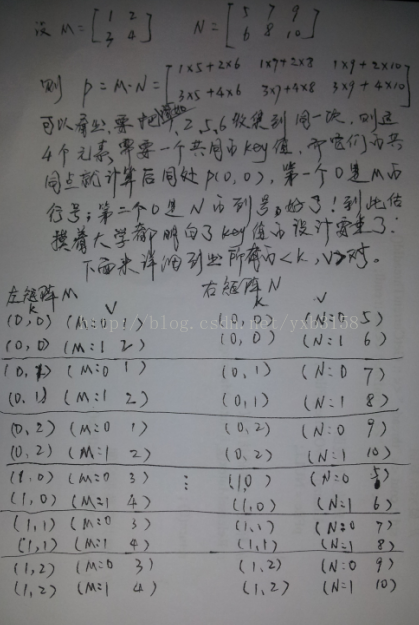 设 M = [1 2 N = [5 7 9
3 4] 6 8 10]
则 P = M·N = [1×5+2×6 1×7+2×8 1×9+2×10
3×5+4×6 3×7+4×8 3×9+4×10]
可以看出,要把 1,2,5,6收集到同一次,则这
4个元素需要一个共同的key值,而它们的共
同点就计算后同处P(0,0),第一个0是M的
行号;第二个0是N的列号,好了!到此估
摸着大学都明白了key值的设计需求了:
下面来详细列出所有的<k,v>对。
左矩阵M 右矩阵N
k V k V
(0,0) (M=0 1) (0,0) (N=0 5)
http://blog.csdn.net/yxb3158
(0,0) (M=1 2) (0,0) (N=1 6)
(0,1) (M=0 1) (0,1) (N=0 7)
(0,1) (M=1 2) (0,1) (N=1 8)
(0,2) (M=0 1) (0,2) (N=0 9)
(0,2) (M=1 2) (0,2) (N=1 10)
(1,0) (M=0 3) ⋮ (1,0) (N=0 5)
(1,0) (M=1 4) (1,0) (N=1 6)
(1,1) (M=0 3) (1,1) (N=0 7)
(1,1) (M=1 4) (1,1) (N=1 8)
(1,2) (M=0 3) (1,2) (N=0 9)
(1,2) (M=1 4) (1,2) (N=1 10)